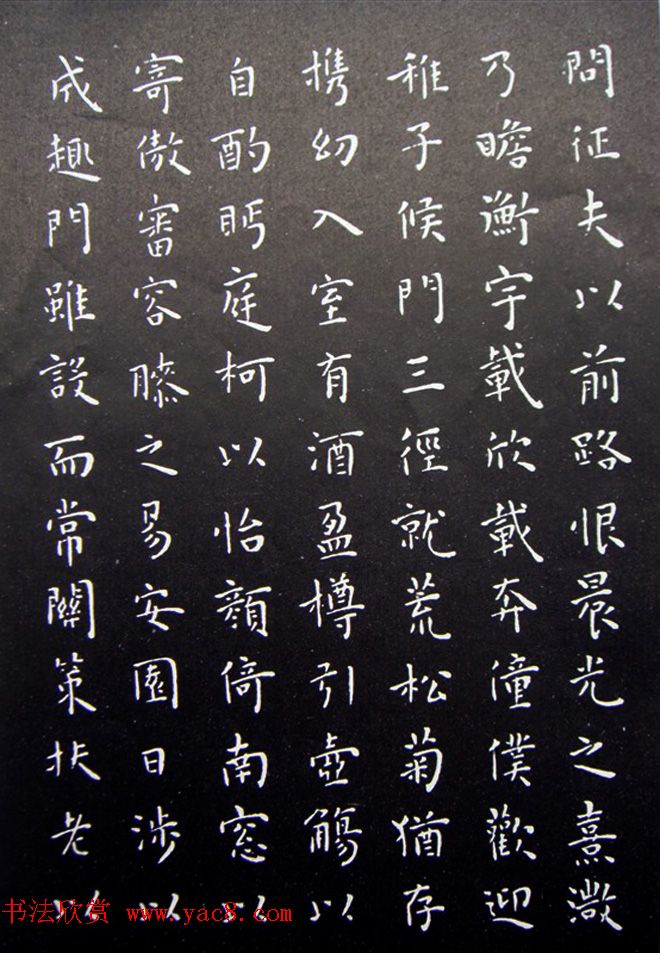 問征夫以前路恨晨光之熹溦
乃瞻衡宇載欣載奔僮僕歡迎
稚子候門三徑就荒松菊猶存
携幼入室有酒盈樽引壺觴以
自酌眄庭柯以怡顔倚南窓以
寄傲審容膝之易安園日涉以
成趣門雖設而常關策扶老以
书法欣赏 www.yac8.com